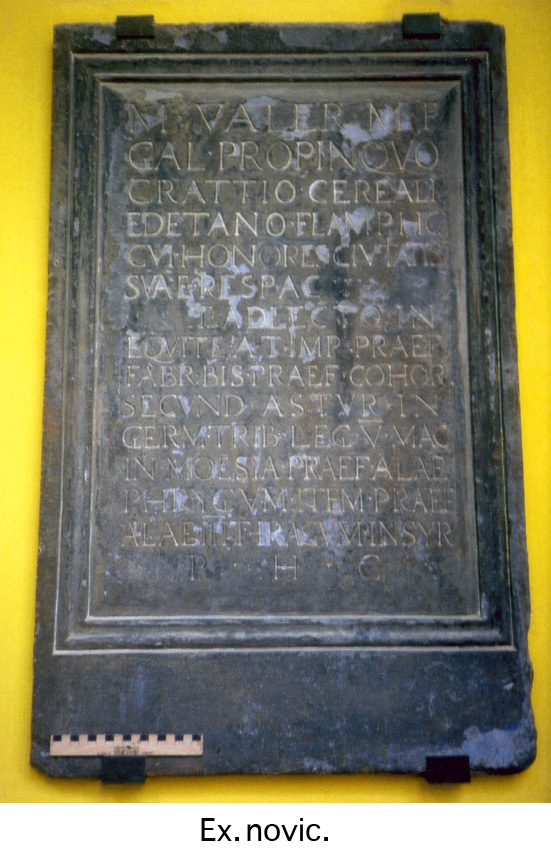 M · VALER · M · F
GAL · PROPINQVO
GRATTIO · CEREALI
EDETANO · FLAM · P · H · C
CVI · HONORES · CIVITATIS
SVAE · RES · P · AC
ADLECTO · IN
EQVITE · A · T · IMP · PRAEF
FABR · BIS · PRAEF · COHOR
SECVND · ASTVR · IN
GERM · TRIB · LEG · V · MAC
IN · MOESIA · PRAEF · ALAE
PHRYGVM · ITEM · PRAEF
ALAE · III · THRACVM · IN SYR
P · H · C
Ex. novic.